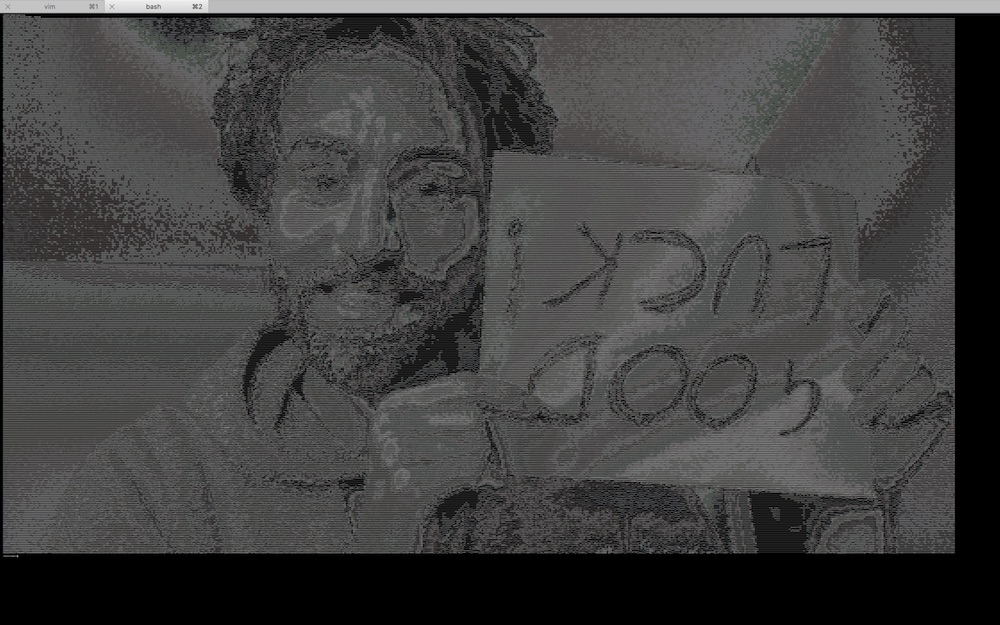 vim ⌘1 bash ⌘2
GOOD
LUCK!